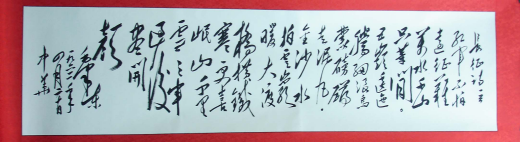 长征诗一
红军不怕
远征难
万水千山
只等闲。
五岭逶迤
腾细浪乌
蒙磅礴
走泥丸。
金沙水
拍云崖
暖大渡
桥横铁
索寒更喜
岷山千里
雪三军
过后
尽开
颜
毛泽东
一九六二年
四月二十日